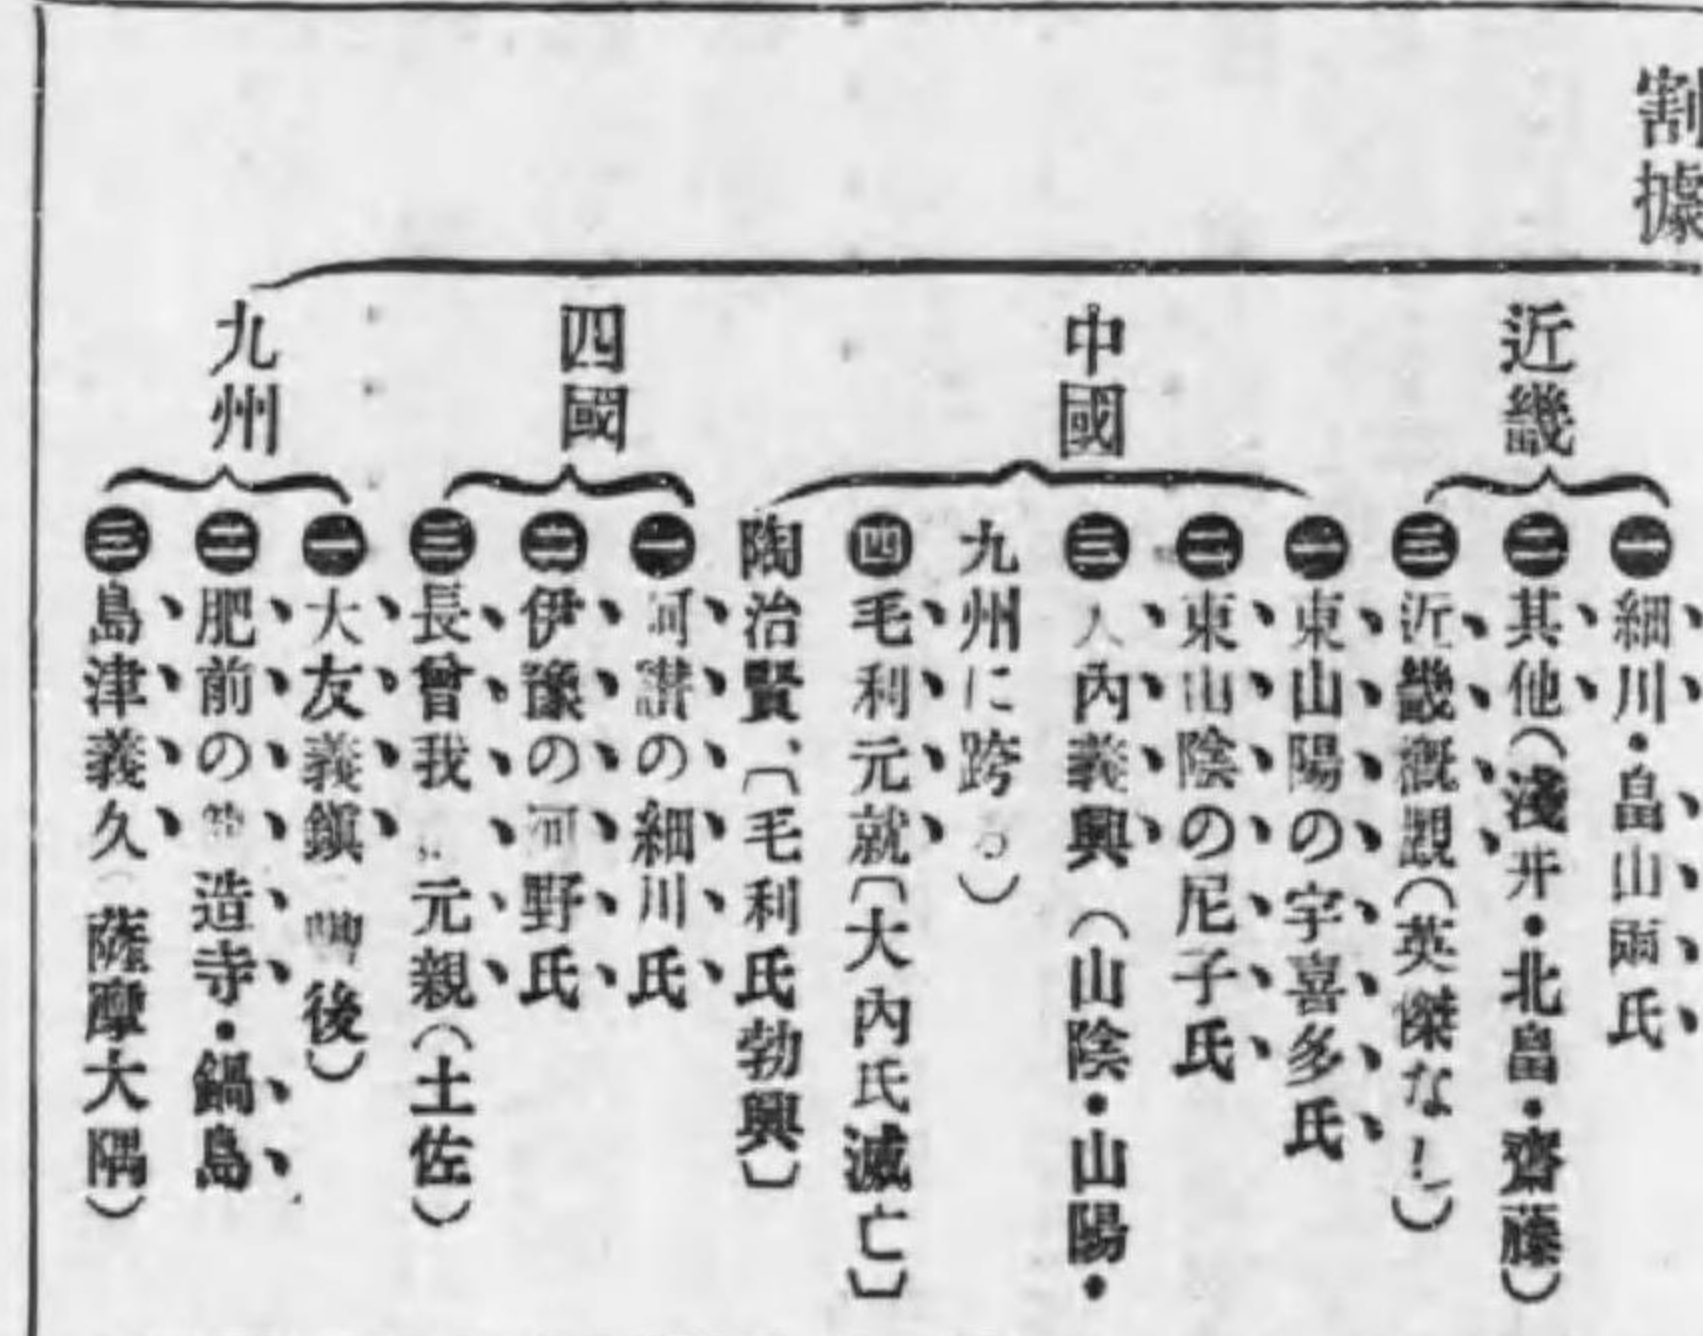 割據
近畿
㊀細川・畠山兩氏
㊁其他(淺井・北畠・齋藤)
㊂近畿概觀(英傑なし)
中國
㊀東山陽の宇喜多氏
㊁東山陰の尼子氏
㊂大內義興(山陰・山陽・
九州に跨る)
㊃毛利元就〔大內氏滅亡〕
陶治賢、〔毛利氏勃興〕
四國
㊀讃の細川氏
㊁伊豫の河野氏
㊂長曾我元親(土佐)
九州
㊀大友義鎭(後)
㊁肥前の造寺・鍋島
㊂島津義久(薩摩大隅)